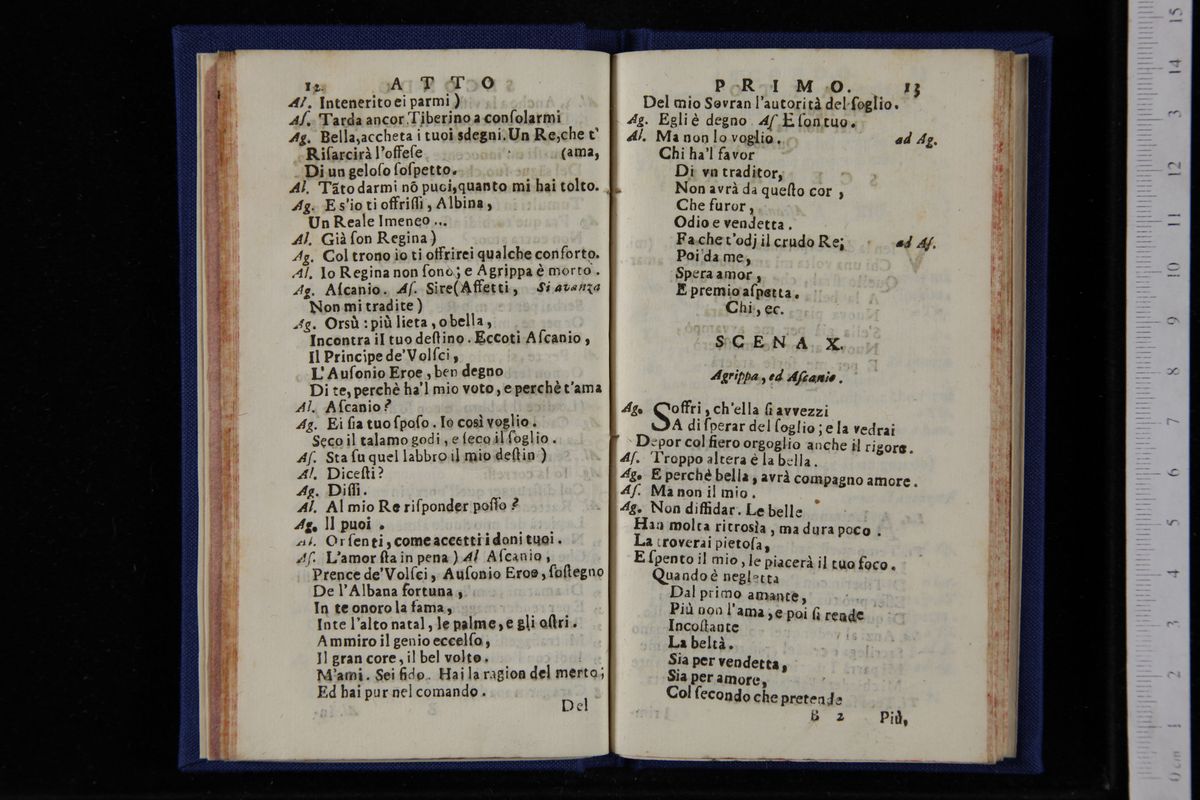 12 ATTO
Al. Intenerito ei parmi )
Aſ. Tarda ancor Tiberino a conſolarmi
Ag. Bella, accheta i tuoi sdegni. Un Re, che t'
Riſarcirà l'offeſe (ama,
Di un geloſo ſoſpetto.
Al. Tãto darmi nõ puoi, quanto mi hai tolto.
Ag. E s'io ti offriſſi, Albina,
Un Reale Imeneo ...
Al. Già ſon Regina )
Ag. Col trono io ti offrirei qualche conforto.
Al. Io Regina non ſono; e Agrippa è morto.
Ag. Aſcanio. Aſ. Sire (Affetti, Si avanza
Non mi tradite )
Ag. Orsù : più lieta, o bella,
Incontra il tuo deſtino. Eccoti Aſcanio,
Il Principe de' Volſci,
L'Auſonio Eroe, ben degno
Di te, perchè ha'l mio voto, e perchè t'ama
Al. Aſcanio?
Ag. Ei ſia tuo ſpoſo. Io così voglio.
Seco il talamo godi, e ſeco il ſoglio.
Aſ. Sta ſu quel labbro il mio deſtin )
Al. Diceſti?
Ag. Diſſi.
Al. Al mio Re riſponder poſſo?
Ag. Il puoi.
Al. Or ſenti, come accetti i doni tuoi.
Aſ. L'amor ſta in pena ) Al Aſcanio,
Prence de' Volſci, Auſonio Eroe, ſoſtegno
De l'Albana fortuna,
In te onoro la fama,
Inte l'alto natal, le palme, e gli oſtri.
Ammiro il genio eccelſo,
Il gran core, il bel volto.
M'ami. Sei fido. Hai la ragion del merto;
Ed hai pur nel comando.
Del
PRIMO. 13
Del mio Sovran l'autorità del ſoglio.
Ag. Egli è degno Aſ E ſon tuo.
Al. Ma non lo voglio. ad Ag.
Chi ha'l favor
Di vn traditor,
Non avrà da queſto cor,
Che furor,
Odio e vendetta.
Fa che t'odj il crudo Re; ad Aſ.
Poi da me,
Spera amor,
E premio aſpetta.
Chi, ec.
SCENA X.
Agrippa, ed Aſcanio.
Ag. Soffri, ch'ella ſi avvezzi
A di ſperar del ſoglio; e la vedrai
Depor col fiero orgoglio anche il rigore.
Aſ. Troppo altera è la bella.
Ag. E perchè bella, avrà compagno amore.
Aſ. Ma non il mio.
Ag. Non diffidar. Le belle
Han molta ritrosìa, ma dura poco.
La troverai pietoſa,
E ſpento il mio, le piacerà il tuo foco.
Quando è negletta
Dal primo amante,
Più non l'ama, e poi ſi rende
Incoſtante
La beltà.
Sia per vendetta,
Sia per amore,
Col ſecondo che pretende
B 2 Più,
0 cm 1 2 3 4 5 6 7 8 9 10 11 12 13 14 15